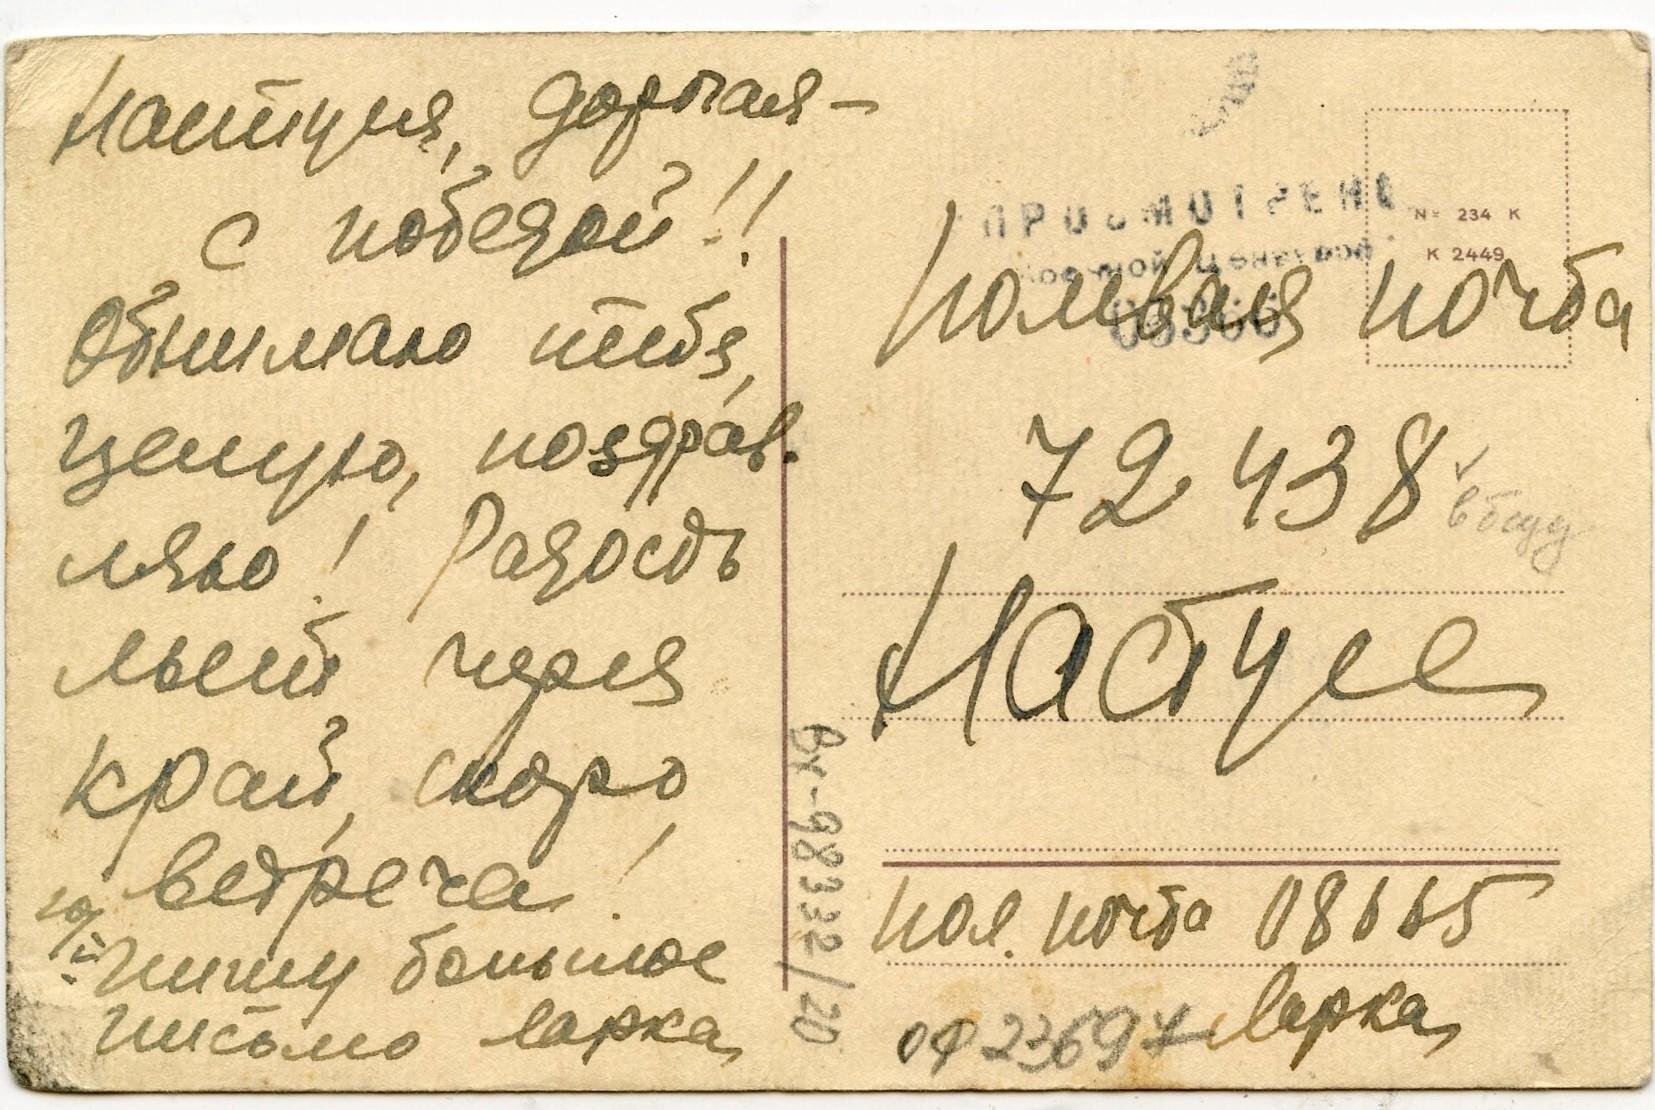 Настуля, дорогая –
с победой!!
Обнимаю тебя,
целую, поздрав-
ляю! Радость
льет через
край, скоро
встреча!
Пишу большое
письмо Ларка
ПРОСМОТРЕНО
Военной Цензурой
№ 234 К
К 2449
Полевая почта
72438
Настуле
Пол. почта 08665
Ларка
оф 23697
Вх-98332/20